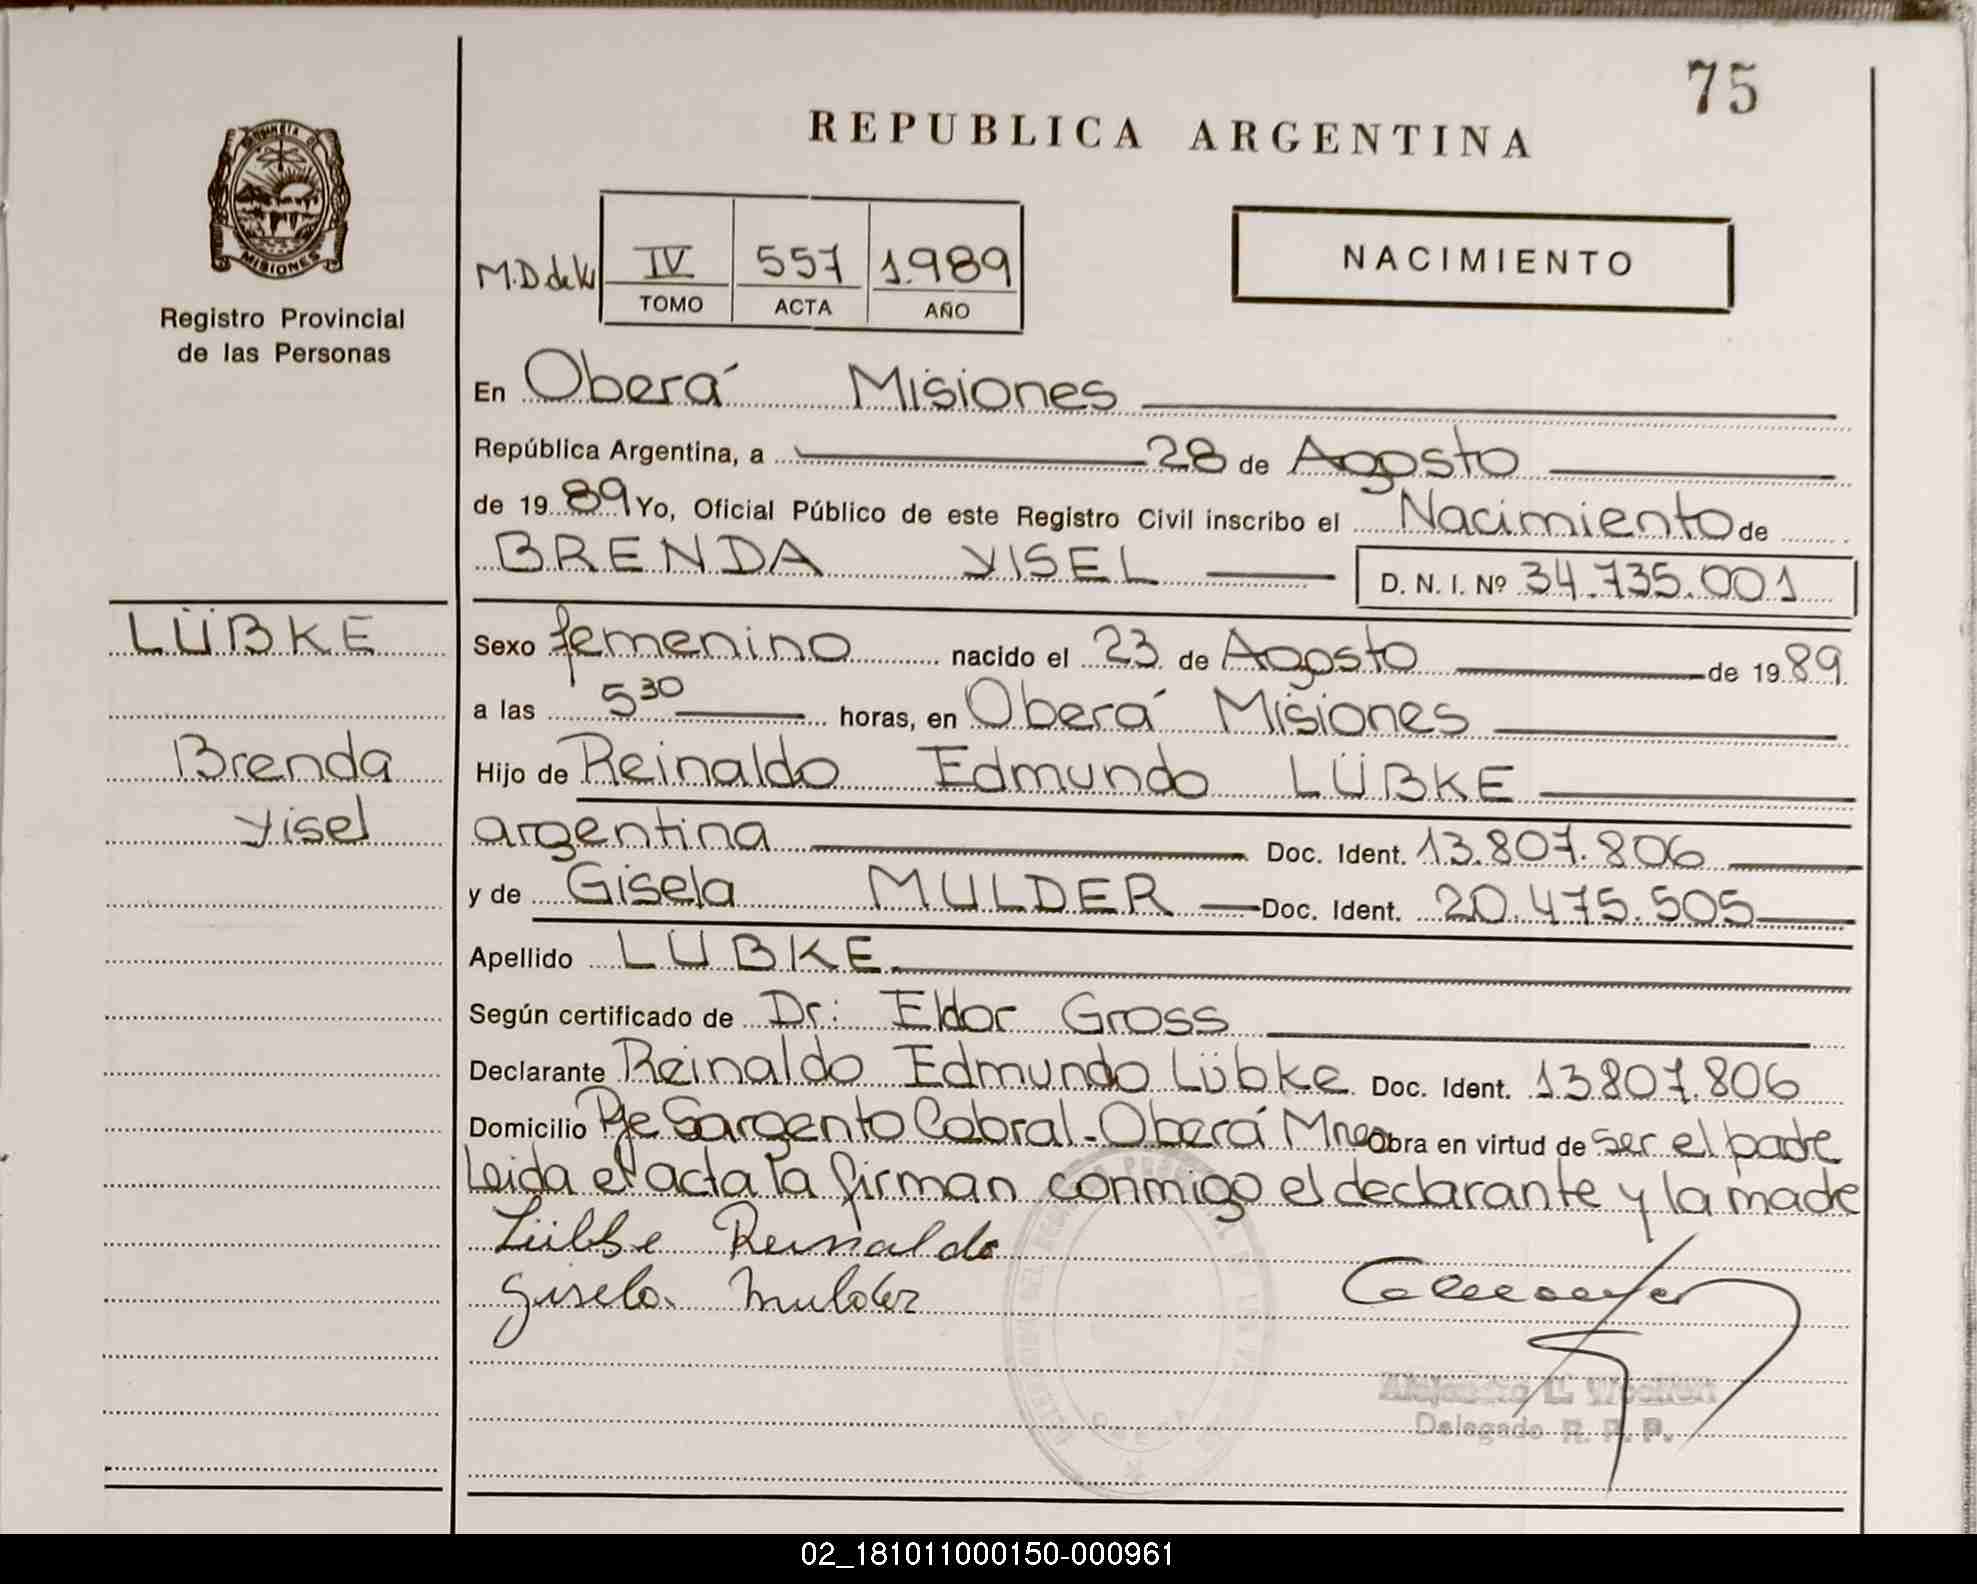 75
REPUBLICA ARGENTINA
PROVINCIA DE
MISIONES
Registro Provincial
de las Personas
IV 557 1.989
TOMO ACTA AÑO
NACIMIENTO
En Oberá Misiones
República Argentina, a 28 de Agosto
de 1989 Yo, Oficial Público de este Registro Civil inscribo el Nacimiento de
BRENDA YISEL D. N. I. Nº 34.735.001
LÜBKE
Brenda
Yisel
Sexo femenino nacido el 23 de Agosto de 1989
a las 5 30 horas, en Oberá Misiones
Hijo de Reinaldo Edmundo LÜBKE
argentina Doc. Ident. 13.807.806
y de Gisela MULDER Doc. Ident. 20.475.505
Apellido LUBKE
Según certificado de Dr: Eldor Gross
Declarante Reinaldo Edmundo Lübke Doc. Ident. 13.807.806
Domicilio Pje Sargento Cabral-Oberá Mnes Obra en virtud de ser el padre
Leida el acta la firman conmigo el declarante y la madre
Lübke Reinaldo
Gisela Mulder
Delegado R. P. P.
02_181011000150-000961